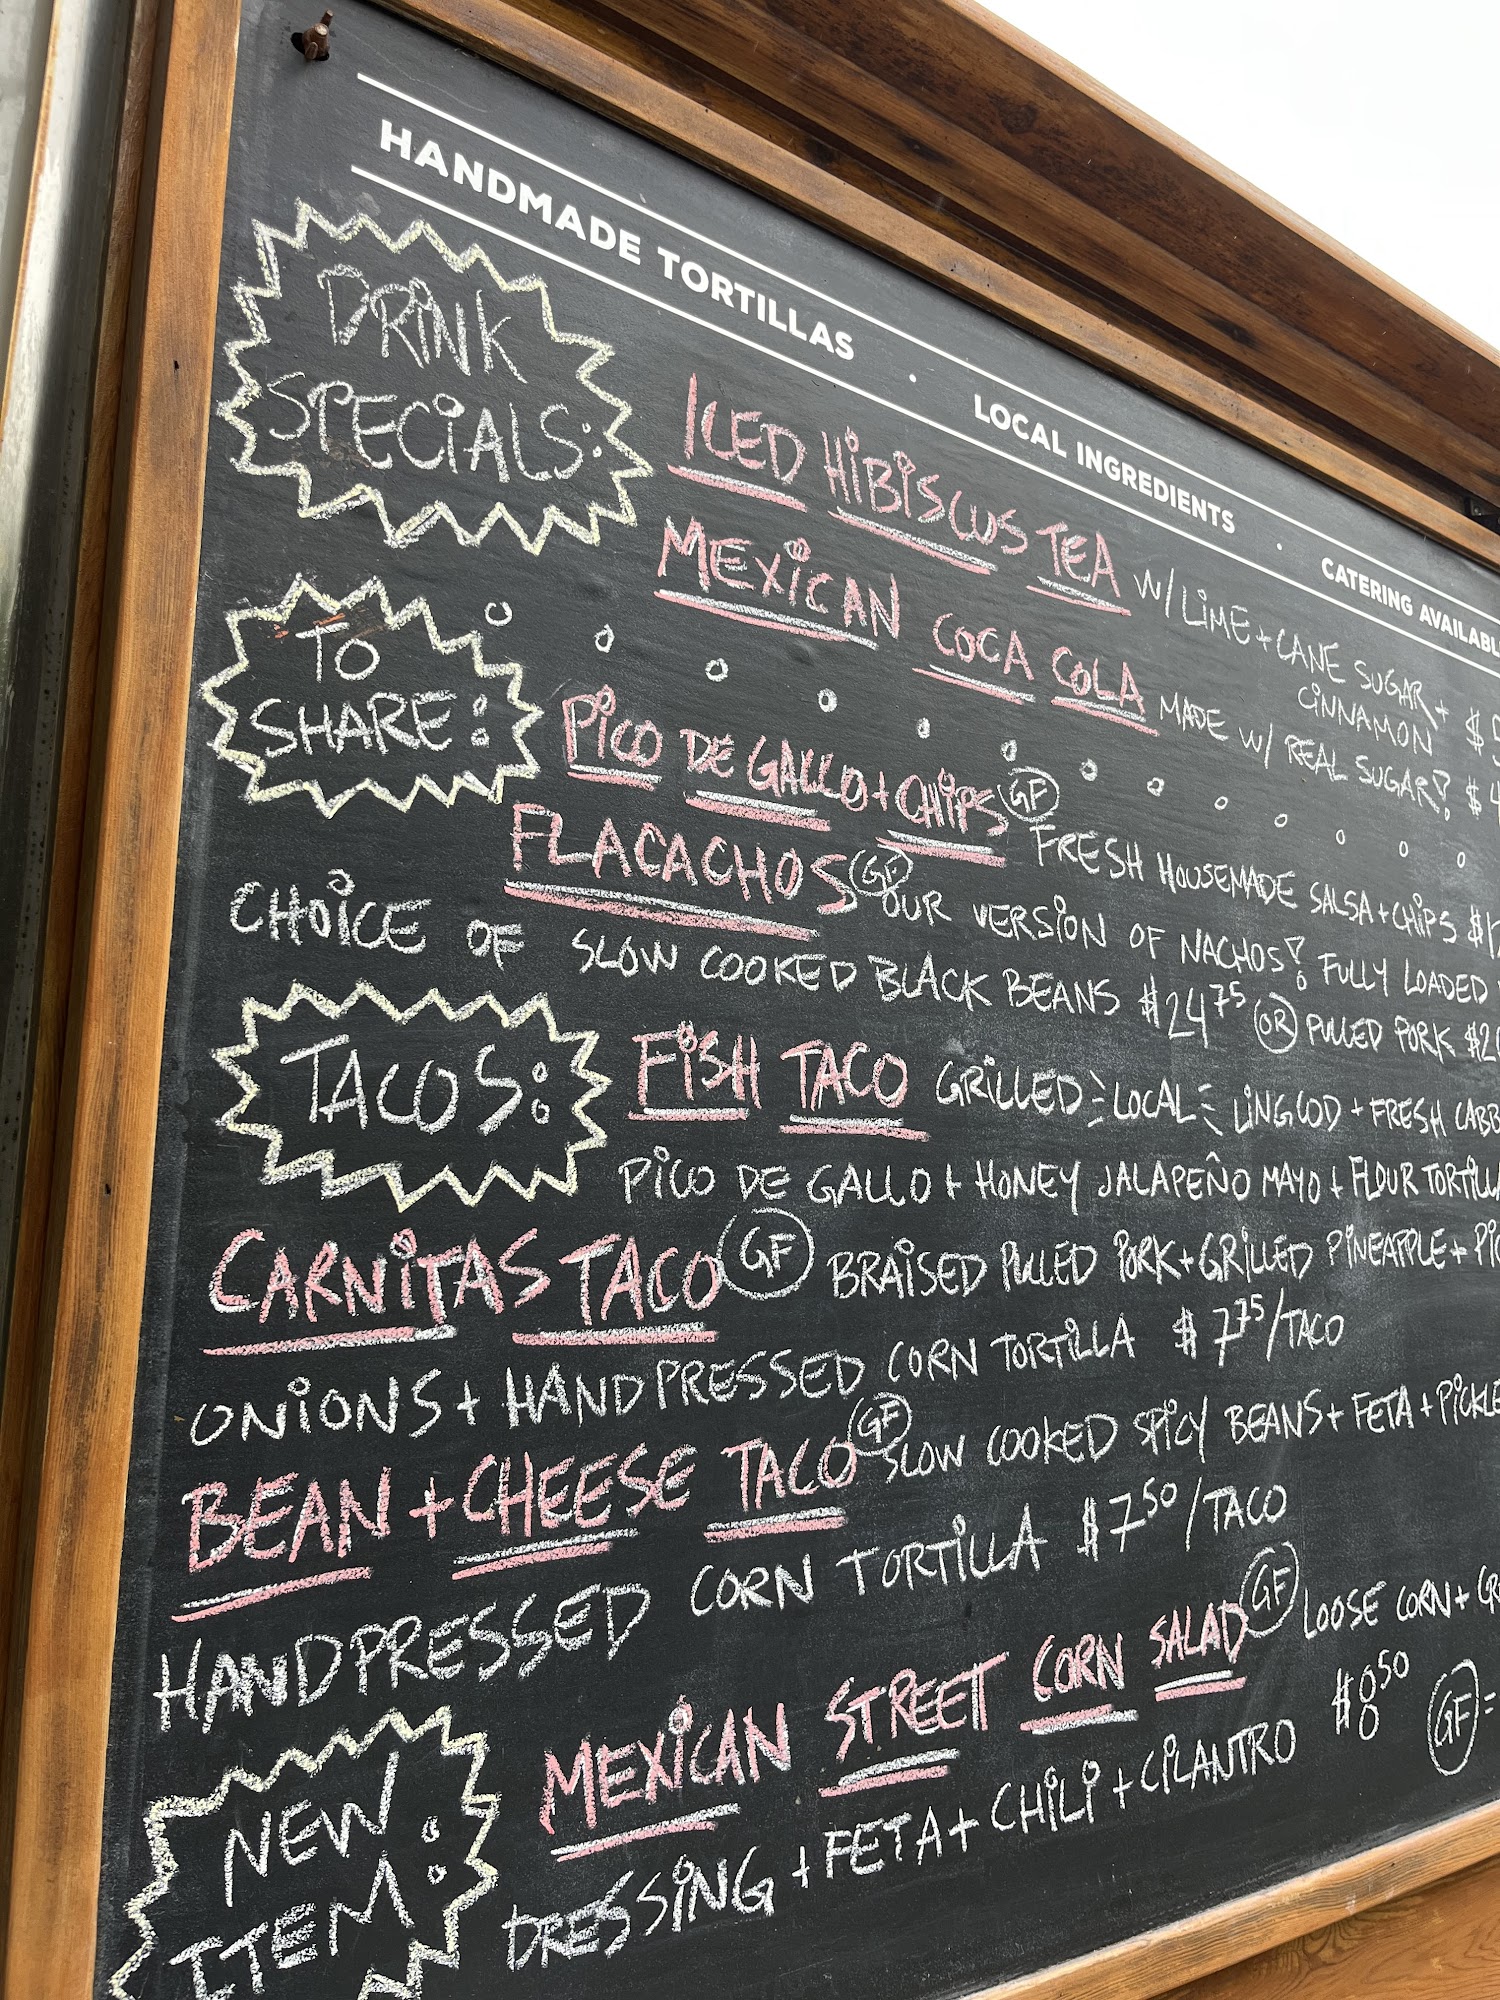 HANDMADE TORTILLAS · LOCAL INGREDIENTS · CATERING
DRINK
SPECIALS:
ICED HIBISCUS TEA W/ LIME + CANE SUGAR +
CINNAMON
MEXICAN COCA COLA MADE W/ REAL SUGAR!
TO
SHARE:
PICO DE GALLO + CHIPS GF FRESH HOUSEMADE SALSA + CHIPS
FLACACHOS GF OUR VERSION OF NACHOS! FULLY LOADED
CHOICE OF SLOW COOKED BLACK BEANS $24.75 OR PULLED PORK
TACOS:
FISH TACO GRILLED LOCAL LINGCOD + FRESH
PICO DE GALLO + HONEY JALAPEÑO MAYO + FLOUR
CARNITAS TACO GF BRAISED PULLED PORK + GRILLED PINEAPPLE +
ONIONS + HANDPRESSED CORN TORTILLA $7.75/TACO
BEAN + CHEESE TACO GF SLOW COOKED SPICY BEANS + FETA +
HANDPRESSED CORN TORTILLA $7.50/TACO
NEW
ITEM:
MEXICAN STREET CORN SALAD GF LOOSE CORN +
DRESSING + FETA + CHILI + CILANTRO $8.50
GF =